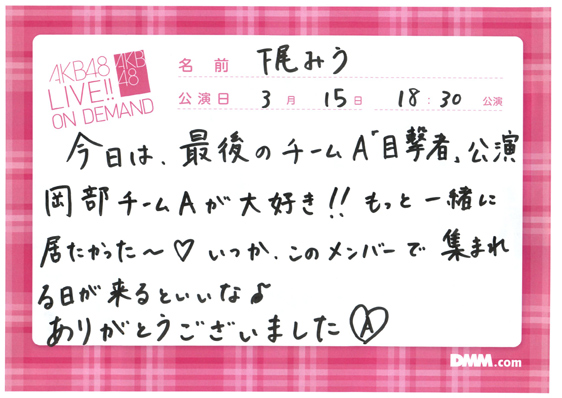 AKB48
LIVE!!
ON DEMAND
AKB
48
名前 下尾みう
公演日 3月 15日 18:30 公演
今日は、最後のチームA「目撃者」公演
岡部チームAが大好き!! もっと一緒に
居たかった〜♡ いつか、このメンバーで 集まれ
る日が来るといいな♪
ありがとうございました A
DMM.com